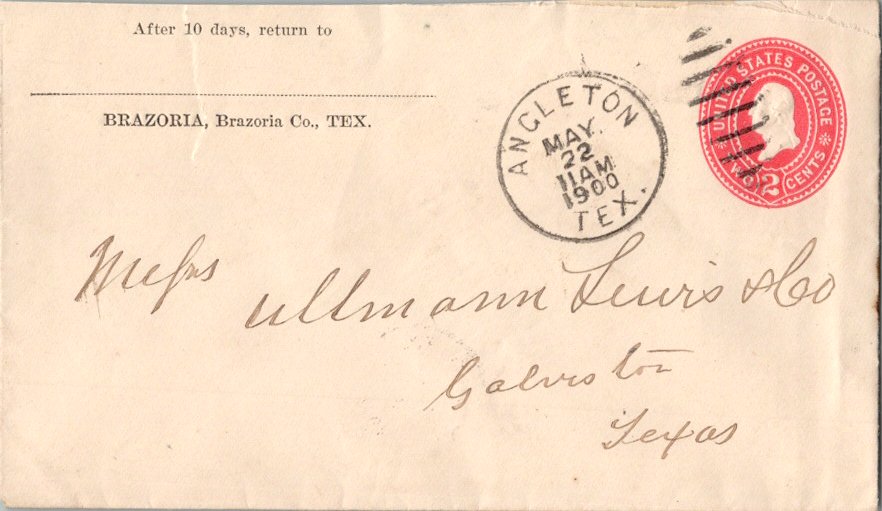 After 10 days, return to
BRAZORIA, Brazoria Co., TEX.
ANGLETON
MAY.
22
11AM
1900
TEX.
UNITED STATES POSTAGE
TWO 2 CENTS
Messrs
Ullmann Lewis & Co
Galveston
Texas